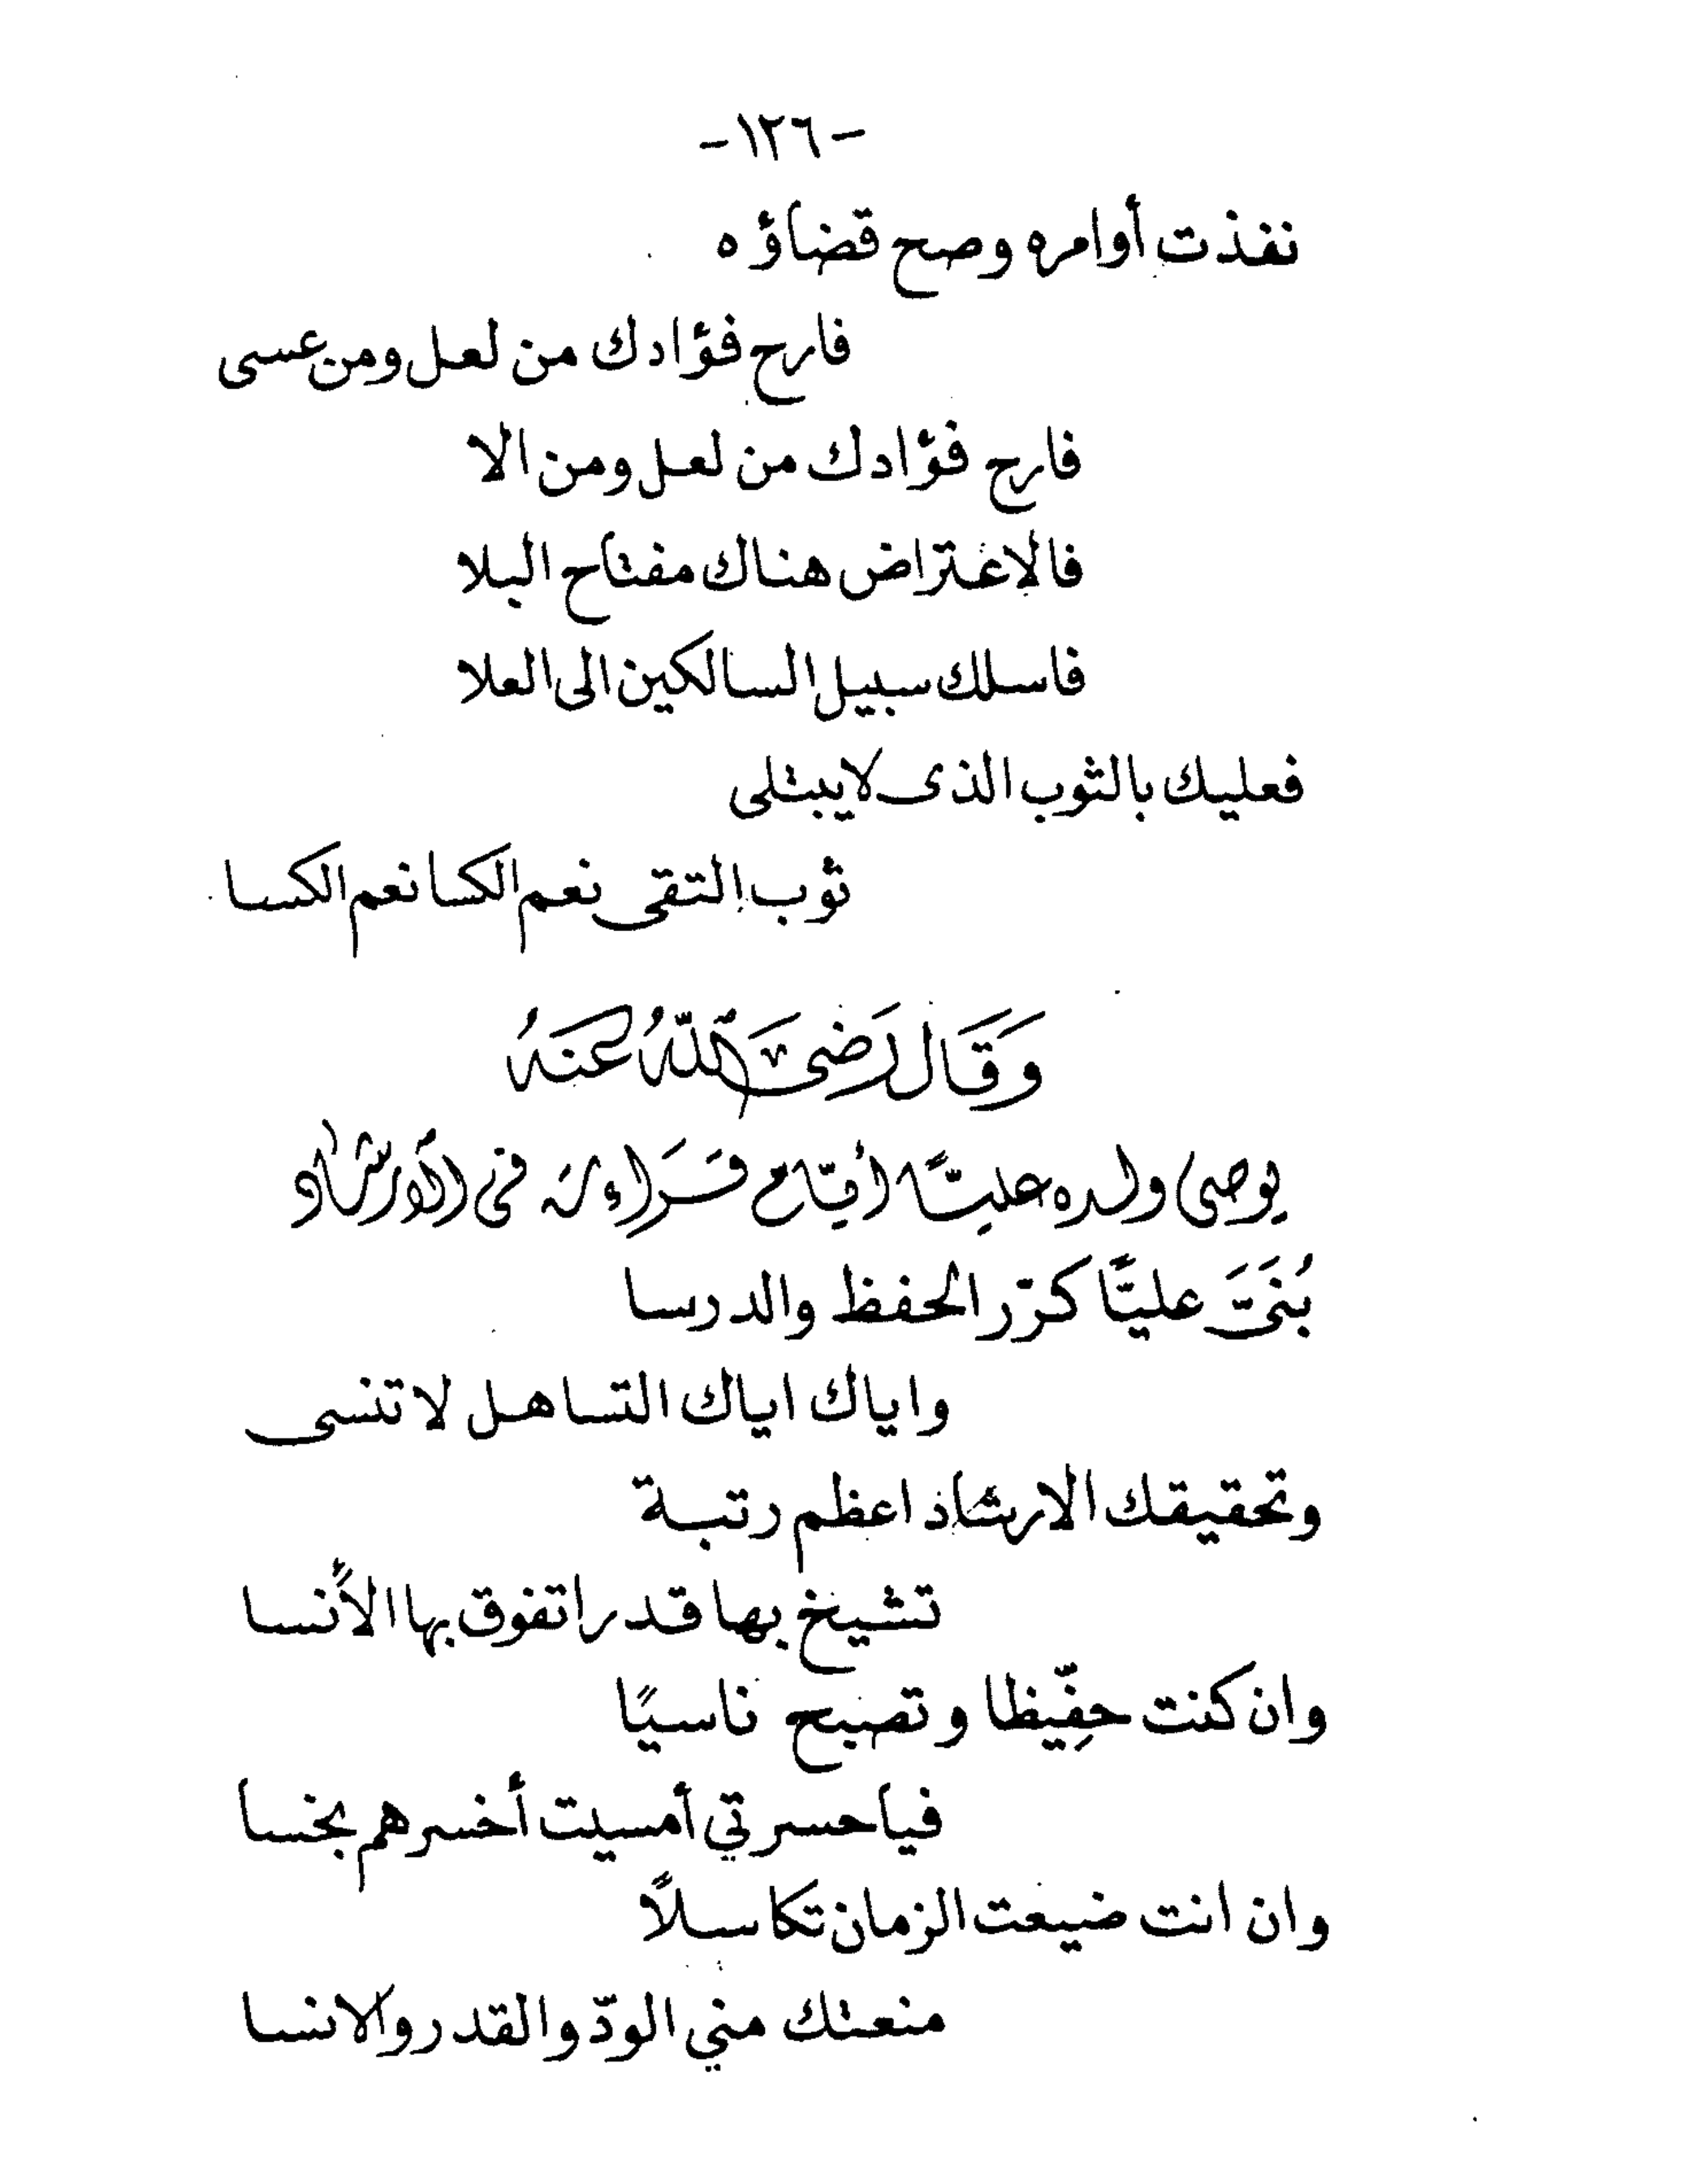 -١٢٦-
نفذت أوامره وصح قضاؤه
فارح فؤادك من لعل ومن عسى
فارح فؤادك من لعل ومن الا
فالاعتراض هناك مفتاح البلا
فاسلك سبيل السالكين الى العلا
فعليك بالثوب الذى لا يبتلى
ثوب التقى نعم الكسا نعم الكسا
وَقَال رَضىَ اللّٰهُ عَنهُ
يوصى ولده عليًّا أيّام قَرَاءته فى الأرشاد
بُنَىَّ عليًّا كرّر الحفظ والدرسا
واياك اياك التساهل لا تنسى
وتحقيقك الارشاد اعظم رتبة
تشيخ بها قدرا تفوق بها الأنسا
وان كنت حِفّيظا وتصبح ناسيًا
فيا حسرتي أمسيت أخسرهم بخسا
وان انت ضيعت الزمان تكاسلاً
منعتك مني الودّ والقدر والانسا